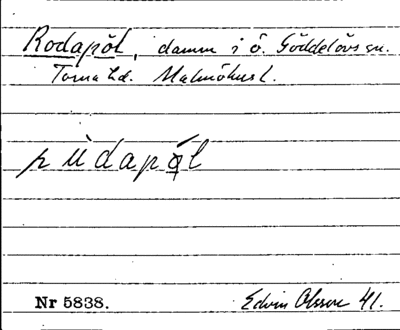 Rodapöl, damm i ö. Göddelövs sn.
Torna hd. Malmöhus l.
rùdapól
Nr 5838. Edvin Olsson 41.